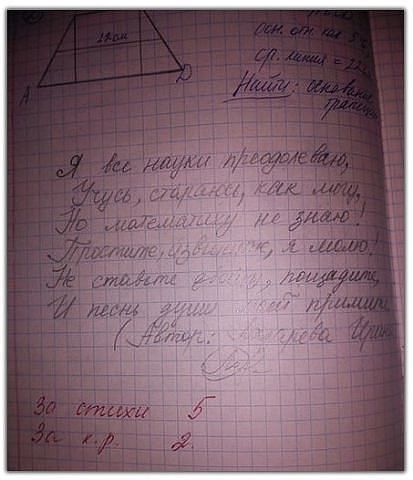 12см
А
D
осн. отн. как 5
ср. линия = 22
Найти: основания
трапеции
Я все науки преодолеваю,
Учусь, стараюсь, как могу,
Но математику не знаю!
Простите, извините, я молю!
Не ставьте двойку, пощадите,
И песнь души моей примите
(Автор: Ирина
За стихи 5
За к.р. 2.